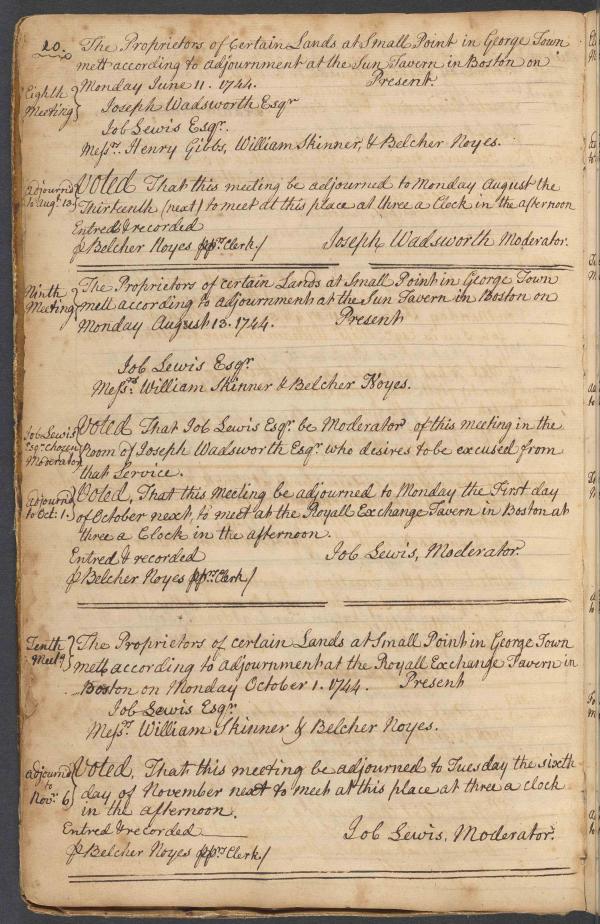 20.
The Proprietors of Certain Lands at Small Point in George Town
mett according to adjournment at the Sun Tavern in Boston on
Monday June 11. 1744. Present.
Eighth
Meeting
Joseph Wadsworth Esqr
Job Lewis Esqr.
Messrs. Henry Gibbs, William Skinner, & Belcher Noyes.
Adjournd
to Augt. 13
Voted That this meeting be adjourned to Monday August the
Thirteenth (next) to meet at this place at three a Clock in the afternoon
Entred & recorded
p Belcher Noyes pprs Clerk/ Joseph Wadsworth Moderator.
Ninth
Meeting
The Proprietors of certain Lands at Small Point in George Town
mett according to adjournment at the Sun Tavern in Boston on
Monday August 13. 1744. Present
Job Lewis Esqr.
Messrs. William Skinner & Belcher Noyes.
Job Lewis
Esqr chozen
Moderator
Voted That Job Lewis Esqr. be Moderator of this meeting in the
Room of Joseph Wadsworth Esqr. who desires to be excused from
that Service.
Adjournd
to Oct: 1.
Voted, That this meeting be adjourned to Monday the First day
of October next, to meet at the Royall Exchange Tavern in Boston at
three a Clock in the afternoon.
Entred & recorded Job Lewis, Moderator
p Belcher Noyes pprs Clerk/
Tenth
Meetg
The Proprietors of certain Lands at Small Point in George Town
mett according to adjournment at the Royall Exchange Tavern in
Boston on Monday October 1. 1744. Present
Job Lewis Esqr.
Messrs. William Skinner & Belcher Noyes.
Adjournd
to
Novr. 6
Voted, That this meeting be adjourned to Tuesday the sixth
day of November next to meet at this place at three a clock
in the afternoon.
Entred & recorded
Job Lewis, Moderator.
p Belcher Noyes pprs Clerk/